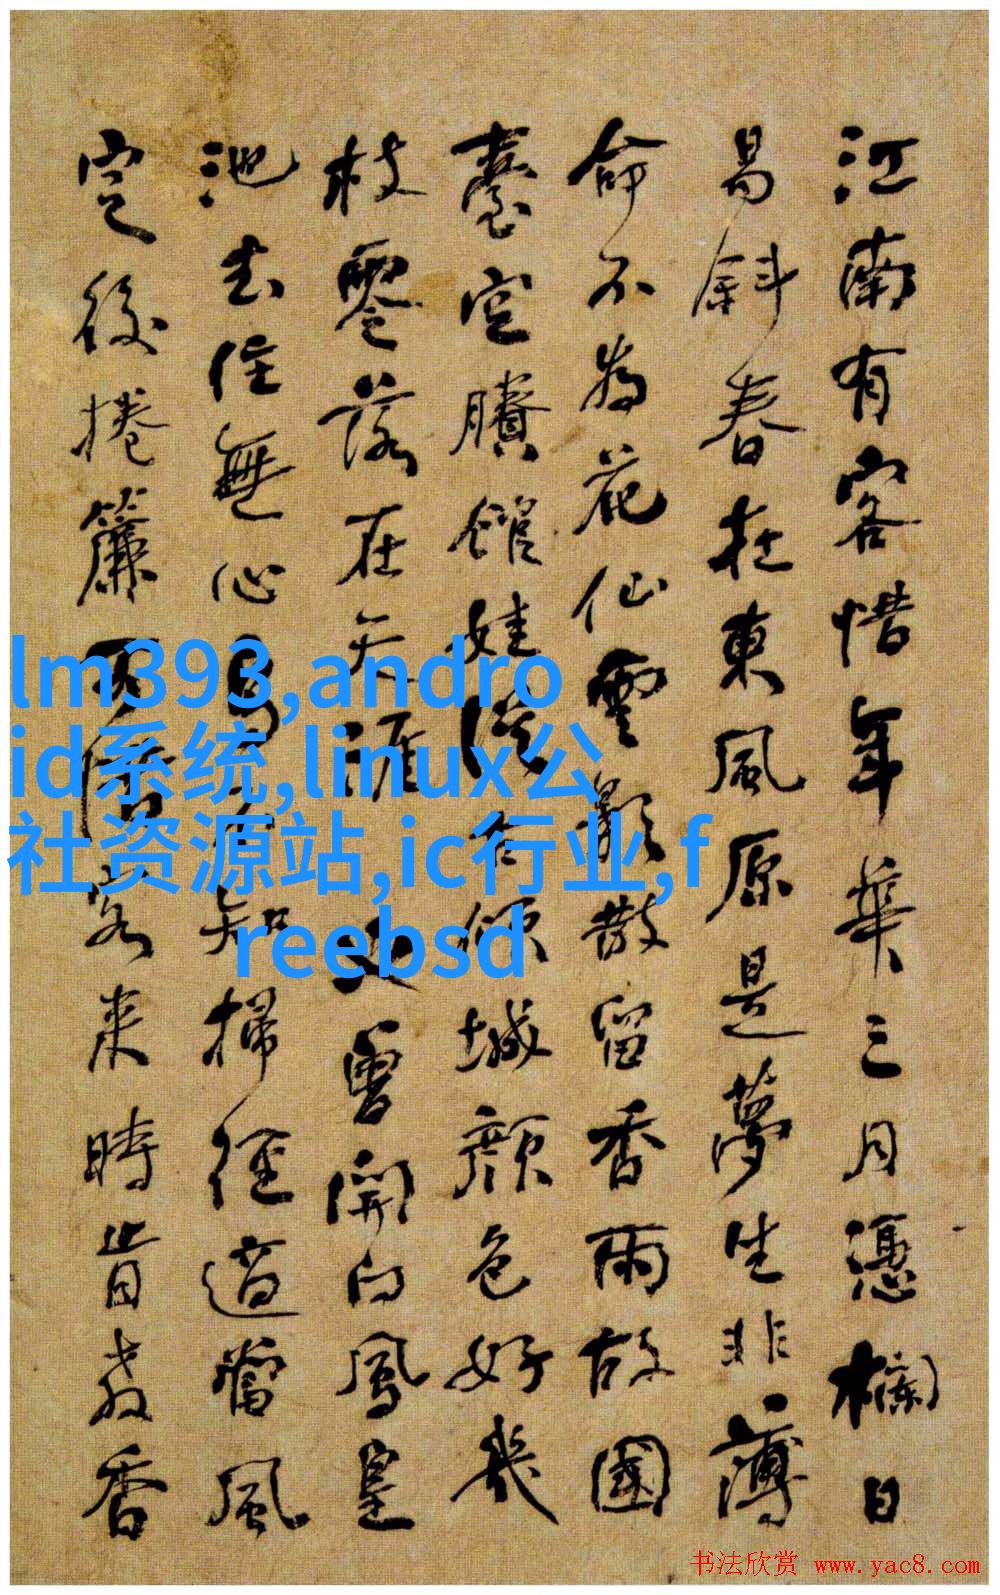 江南有客惜年華三月憑欄日
易斜春在東風原是夢生非薄
命不為花仙雲影散留香雨故國
臺空賸館娃從古傾城顏色好幾
枝零落在天涯又曾開向鳳皇
池去住無心知掃徑適當風
定後捲簾客來時肯教香
lm393,andro
id系统,linux公
社资源站,ic行业,f
reebsd
书法欣赏 www.yac8.com